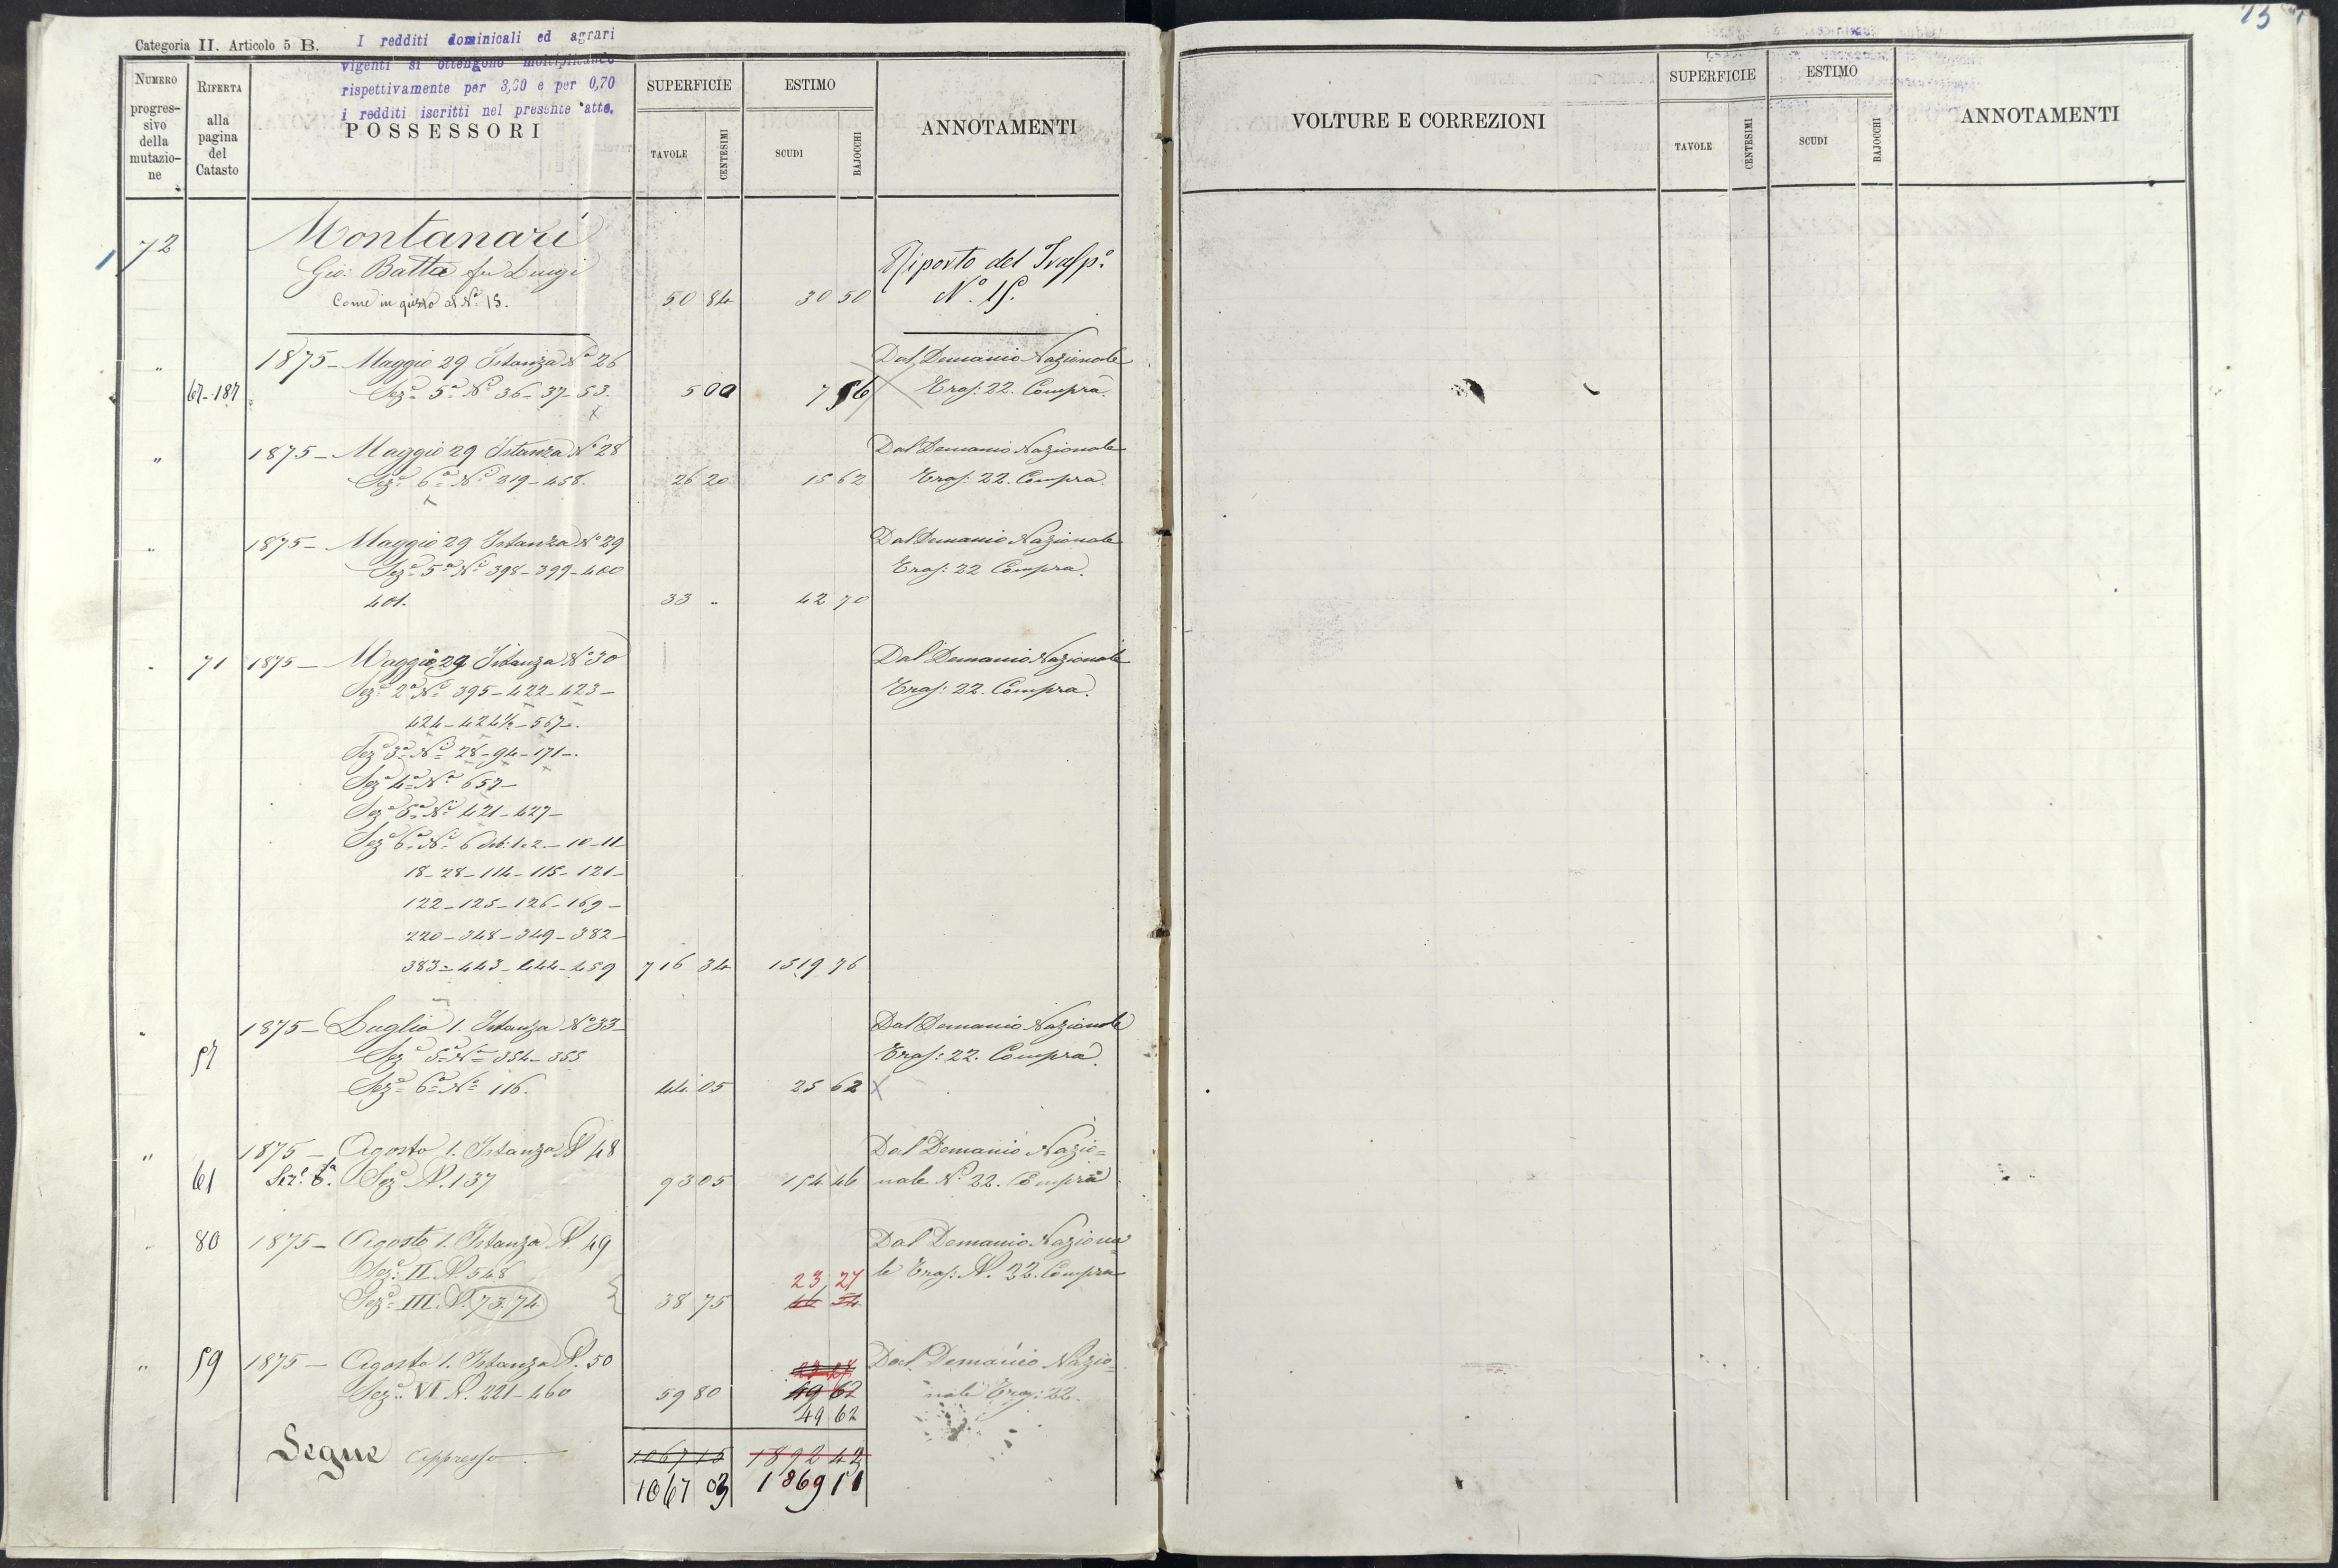 Categoria II. Articolo 5 B.
I redditi dominicali ed agrari
vigenti si ottengono moltiplicando
rispettivamente per 3,60 e per 0,70
i redditi iscritti nel presente atto.
NUMERO progressivo della mutazione
RIFERTA alla pagina del Catasto
POSSESSORI
SUPERFICIE
TAVOLE CENTESIMI
ESTIMO
SCUDI BAJOCCHI
ANNOTAMENTI
72 Montanari
Gio: Batta fu Luigi
Riporto del Trasp.o
Come in questo al N.o 15. 50 84 30 50 N.o 15.
" 1875 - Maggio 29 Istanza N.o 26 Dal Demanio Nazionale
67-187 Sez.e 5.a N.i 36-37-53. 5 00 7 56 Tras: 22. Compra.
" 1875 - Maggio 29 Istanza N.o 28 Dal Demanio Nazionale
Sez.e 6.a N.i 319-458. 26 20 15 62 Tras: 22. Compra.
" 1875 - Maggio 29 Istanza N.o 29 Dal Demanio Nazionale
Sez.e 5.a N.i 398-399-400 Tras: 22 Compra.
401. 33 " 42 70
" 71 1875 - Maggio 29 Istanza N.o 30 Dal Demanio Nazionale
Sez.e 2.a N.i 395-422-423- Tras: 22. Compra.
424-424½-567-.
Sez.e 3.a N.i 28-94-171-.
Sez.e 4.a N.o 657-
Sez.e 5.a N.i 421-427-
Sez.e 6.a N.i 6 sub: 1.2.-10-11-
18-28-114-115-121-
122-125-126-169-
220-348-349-382-
383-443-444-459 716 34 1519 76
" 1875 - Luglio 1. Istanza N.o 33- Dal Demanio Nazionale
57 Sez.e 5.a N.i 354-355 Tras: 22. Compra.
Sez.e 6.a N.o 116. 44 05 25 62
" 1875 - Agosto 1. Istanza N. 48 Dal Demanio Nazio=
61 Sez.e 6.a Sez.e N. 137 93 05 154 46 nale N.o 22. Compra
" 80 1875 - Agosto 1. Istanza N. 49 Dal Demanio Naziona
Sez.e II N. 548 23 27 le Tras: N. 22. Compra
Sez.e III. N. 73.74 38 75 46 54
" 59 1875 - Agosto 1. Istanza N. 50 23 27 Dal Demanio Nazio=
Sez.e VI N. 221-460 59 80 49 62 nale Tras: 22.
49 62
Segue appresso. 1067 15 1892 42
1067 03 1869 11
VOLTURE E CORREZIONI
SUPERFICIE
TAVOLE CENTESIMI
ESTIMO
SCUDI BAJOCCHI
ANNOTAMENTI